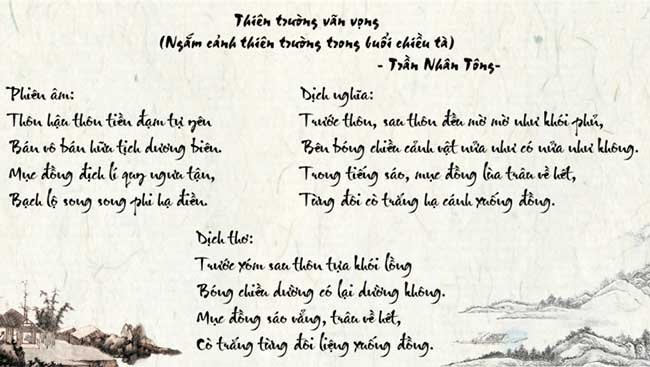 Thiên trường vãn vọng
(Ngắm cảnh thiên trường trong buổi chiều tà)
- Trần Nhân Tông-
Phiên âm:
Thôn hậu thôn tiền đạm tự yên
Bán vô bán hữu tịch dương biên.
Mục đồng địch lí quy ngưu tận,
Bạch lộ song song phi hạ điền.
Dịch nghĩa:
Trước thôn, sau thôn đều mờ mờ như khói phủ,
Bên bóng chiều cảnh vật nửa như có nửa như không.
Trong tiếng sáo, mục đồng lùa trâu về hết,
Từng đôi cò trắng hạ cánh xuống đồng.
Dịch thơ:
Trước xóm sau thôn tựa khói lồng
Bóng chiều dường có lại dường không.
Mục đồng sáo vẳng, trâu về hết,
Cò trắng từng đôi liệng xuống đồng.